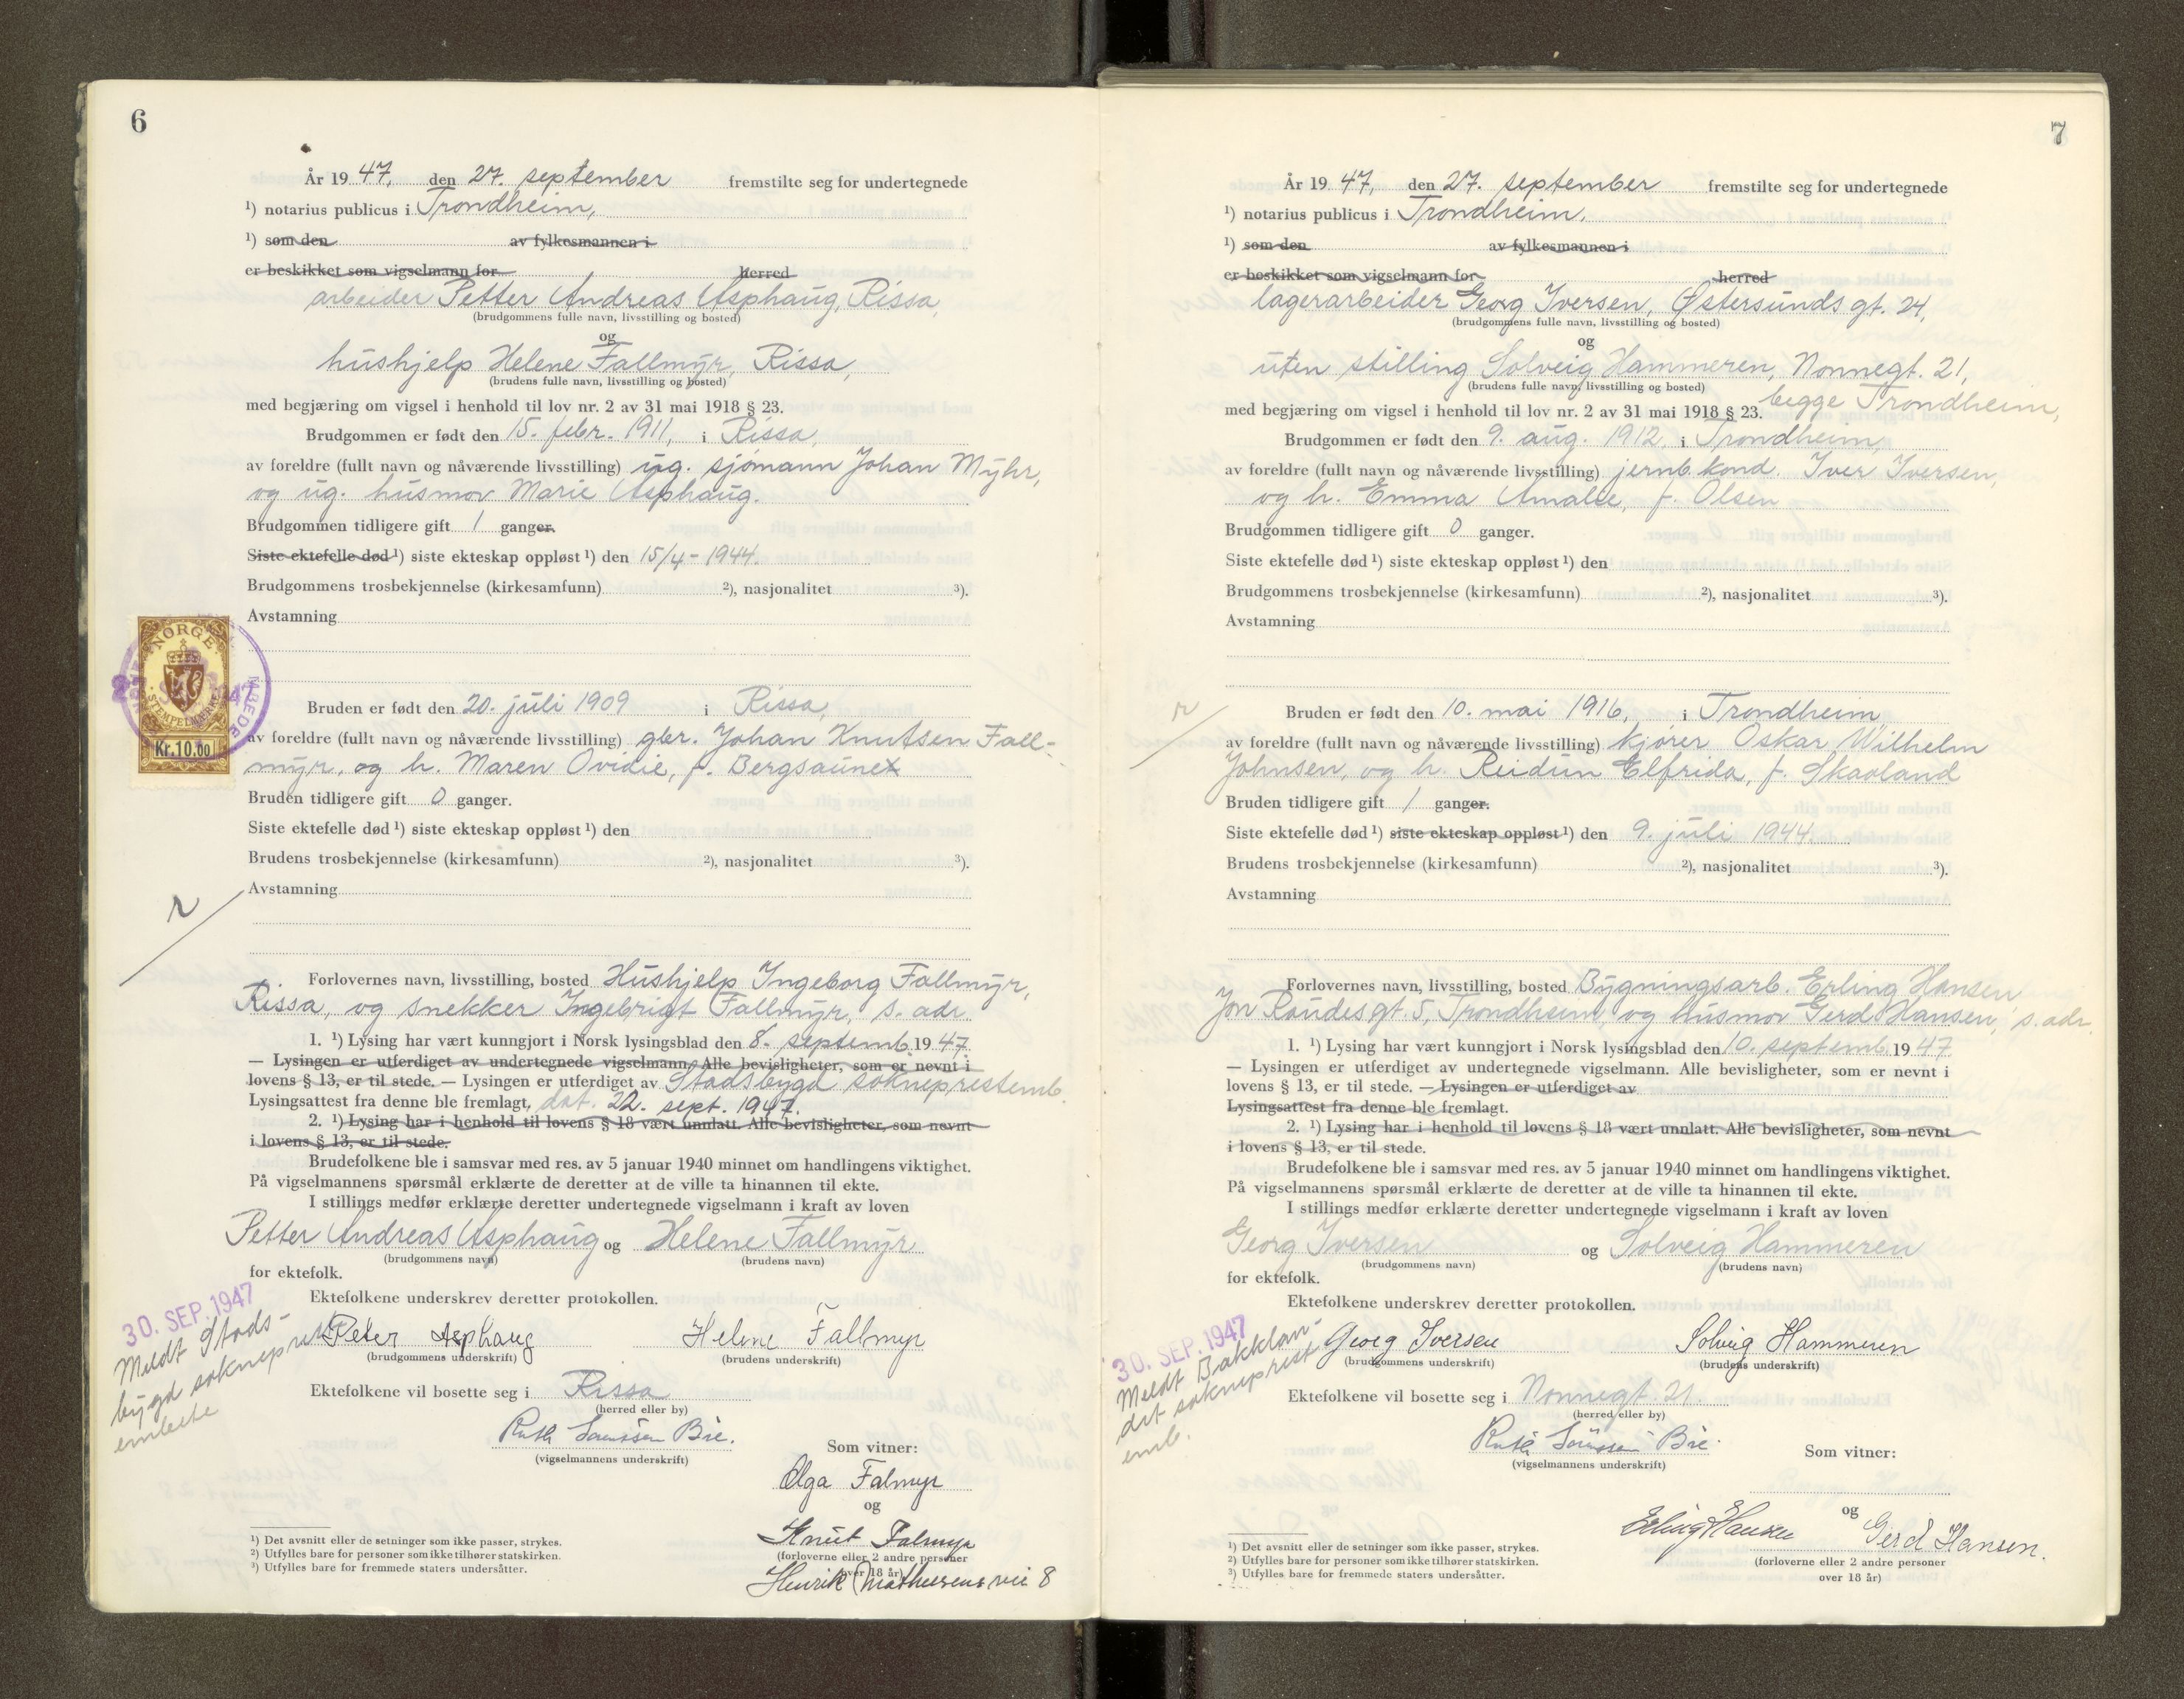 6
År 19 47, den 27. september fremstilte seg for undertegnede
¹) notarius publicus i Trondheim,
¹) som den av fylkesmannen i
er beskikket som vigselmann for herred
arbeider Petter Andreas Asphaug, Rissa,
(brudgommens fulle navn, livsstilling og bosted)
og
hushjelp Helene Fallmyr, Rissa,
(brudens fulle navn, livsstilling og bosted)
med begjæring om vigsel i henhold til lov nr. 2 av 31 mai 1918 § 23.
Brudgommen er født den 15. febr. 1911, i Rissa,
av foreldre (fullt navn og nåværende livsstilling) ug. sjømann Johan Myhr,
og ug. husmor Marie Asphaug.
Brudgommen tidligere gift 1 ganger.
Siste ektefelle død ¹) siste ekteskap oppløst ¹) den 15/4 - 1944.
Brudgommens trosbekjennelse (kirkesamfunn) ²), nasjonalitet ³).
Avstamning
NORGE
STEMPELMERKE
Kr.10,00
Bruden er født den 20. juli 1909 i Rissa,
av foreldre (fullt navn og nåværende livsstilling) gbr. Johan Knutsen Fall-
myr, og h. Maren Ovidie, f. Bergsaunet
Bruden tidligere gift 0 ganger.
Siste ektefelle død ¹) siste ekteskap oppløst ¹) den
Brudens trosbekjennelse (kirkesamfunn) ²), nasjonalitet ³).
Avstamning
Forlovernes navn, livsstilling, bosted Hushjelp Ingeborg Fallmyr,
Rissa, og snekker Ingebrigt Fallmyr, s. adr.
1. ¹) Lysing har vært kunngjort i Norsk lysingsblad den 8. septemb. 19 47
— Lysingen er utferdiget av undertegnede vigselmann. Alle bevisligheter, som er nevnt i
lovens § 13, er til stede. — Lysingen er utferdiget av Stadsbygd sokneprestemb.
Lysingsattest fra denne ble fremlagt, dat. 22. sept. 1947.
2. ¹) Lysing har i henhold til lovens § 18 vært unnlatt. Alle bevisligheter, som nevnt
i lovens § 13, er til stede.
Brudefolkene ble i samsvar med res. av 5 januar 1940 minnet om handlingens viktighet.
På vigselmannens spørsmål erklærte de deretter at de ville ta hinannen til ekte.
I stillings medfør erklærte deretter undertegnede vigselmann i kraft av loven
Petter Andreas Asphaug og Helene Fallmyr
(brudgommens navn) (brudens navn)
for ektefolk.
Ektefolkene underskrev deretter protokollen.
30. SEP. 1947
Meldt Stads-
bygd sokneprest
embete
Peter Asphaug Helene Fallmyr
(brudgommens underskrift) (brudens underskrift)
Ektefolkene vil bosette seg i Rissa
(herred eller by)
Ruth Sørenssen Bie.
(vigselmannens underskrift)
Som vitner:
Olga Falmyr
og
Knut Falmyr
(forloverne eller 2 andre personer
over 18 år)
Henrik Mathiesens vei 8
¹) Det avsnitt eller de setninger som ikke passer, strykes.
²) Utfylles bare for personer som ikke tilhører statskirken.
³) Utfylles bare for fremmede staters undersåtter.
7
År 19 47, den 27. september fremstilte seg for undertegnede
¹) notarius publicus i Trondheim,
¹) som den av fylkesmannen i
er beskikket som vigselmann for herred
lagerarbeider Georg Iversen, Østersunds gt. 24,
(brudgommens fulle navn, livsstilling og bosted)
og
uten stilling Solveig Hammeren, Nonnegt. 21,
(brudens fulle navn, livsstilling og bosted)
begge Trondheim,
med begjæring om vigsel i henhold til lov nr. 2 av 31 mai 1918 § 23.
Brudgommen er født den 9. aug. 1912, i Trondheim,
av foreldre (fullt navn og nåværende livsstilling) jernb.kond. Iver Iversen,
og h. Emma Amalie, f. Olsen
Brudgommen tidligere gift 0 ganger.
Siste ektefelle død ¹) siste ekteskap oppløst ¹) den
Brudgommens trosbekjennelse (kirkesamfunn) ²), nasjonalitet ³).
Avstamning
Bruden er født den 10. mai 1916, i Trondheim
av foreldre (fullt navn og nåværende livsstilling) kjører Oskar Wilhelm
Johnsen, og h. Reidun Elfrida, f. Skaaland
Bruden tidligere gift 1 ganger.
Siste ektefelle død ¹) siste ekteskap oppløst ¹) den 9. juli 1944.
Brudens trosbekjennelse (kirkesamfunn) ²), nasjonalitet ³).
Avstamning
Forlovernes navn, livsstilling, bosted Bygningsarb. Erling Hansen
Jon Raudes gt. 5, Trondheim, og husmor Gerd Hansen, s. adr.
1. ¹) Lysing har vært kunngjort i Norsk lysingsblad den 10. septemb. 19 47
— Lysingen er utferdiget av undertegnede vigselmann. Alle bevisligheter, som er nevnt i
lovens § 13, er til stede. — Lysingen er utferdiget av
Lysingsattest fra denne ble fremlagt.
2. ¹) Lysing har i henhold til lovens § 18 vært unnlatt. Alle bevisligheter, som nevnt
i lovens § 13, er til stede.
Brudefolkene ble i samsvar med res. av 5 januar 1940 minnet om handlingens viktighet.
På vigselmannens spørsmål erklærte de deretter at de ville ta hinannen til ekte.
I stillings medfør erklærte deretter undertegnede vigselmann i kraft av loven
Georg Iversen og Solveig Hammeren
(brudgommens navn) (brudens navn)
for ektefolk.
Ektefolkene underskrev deretter protokollen.
30. SEP. 1947
Meldt Bakklan-
det sokneprest
emb.
Georg Iversen Solveig Hammeren
(brudgommens underskrift) (brudens underskrift)
Ektefolkene vil bosette seg i Nonnegt. 21.
(herred eller by)
Ruth Sørenssen Bie.
(vigselmannens underskrift)
Som vitner:
og
Erling Hansen Gerd Hansen.
(forloverne eller 2 andre personer
over 18 år)
¹) Det avsnitt eller de setninger som ikke passer, strykes.
²) Utfylles bare for personer som ikke tilhører statskirken.
³) Utfylles bare for fremmede staters undersåtter.